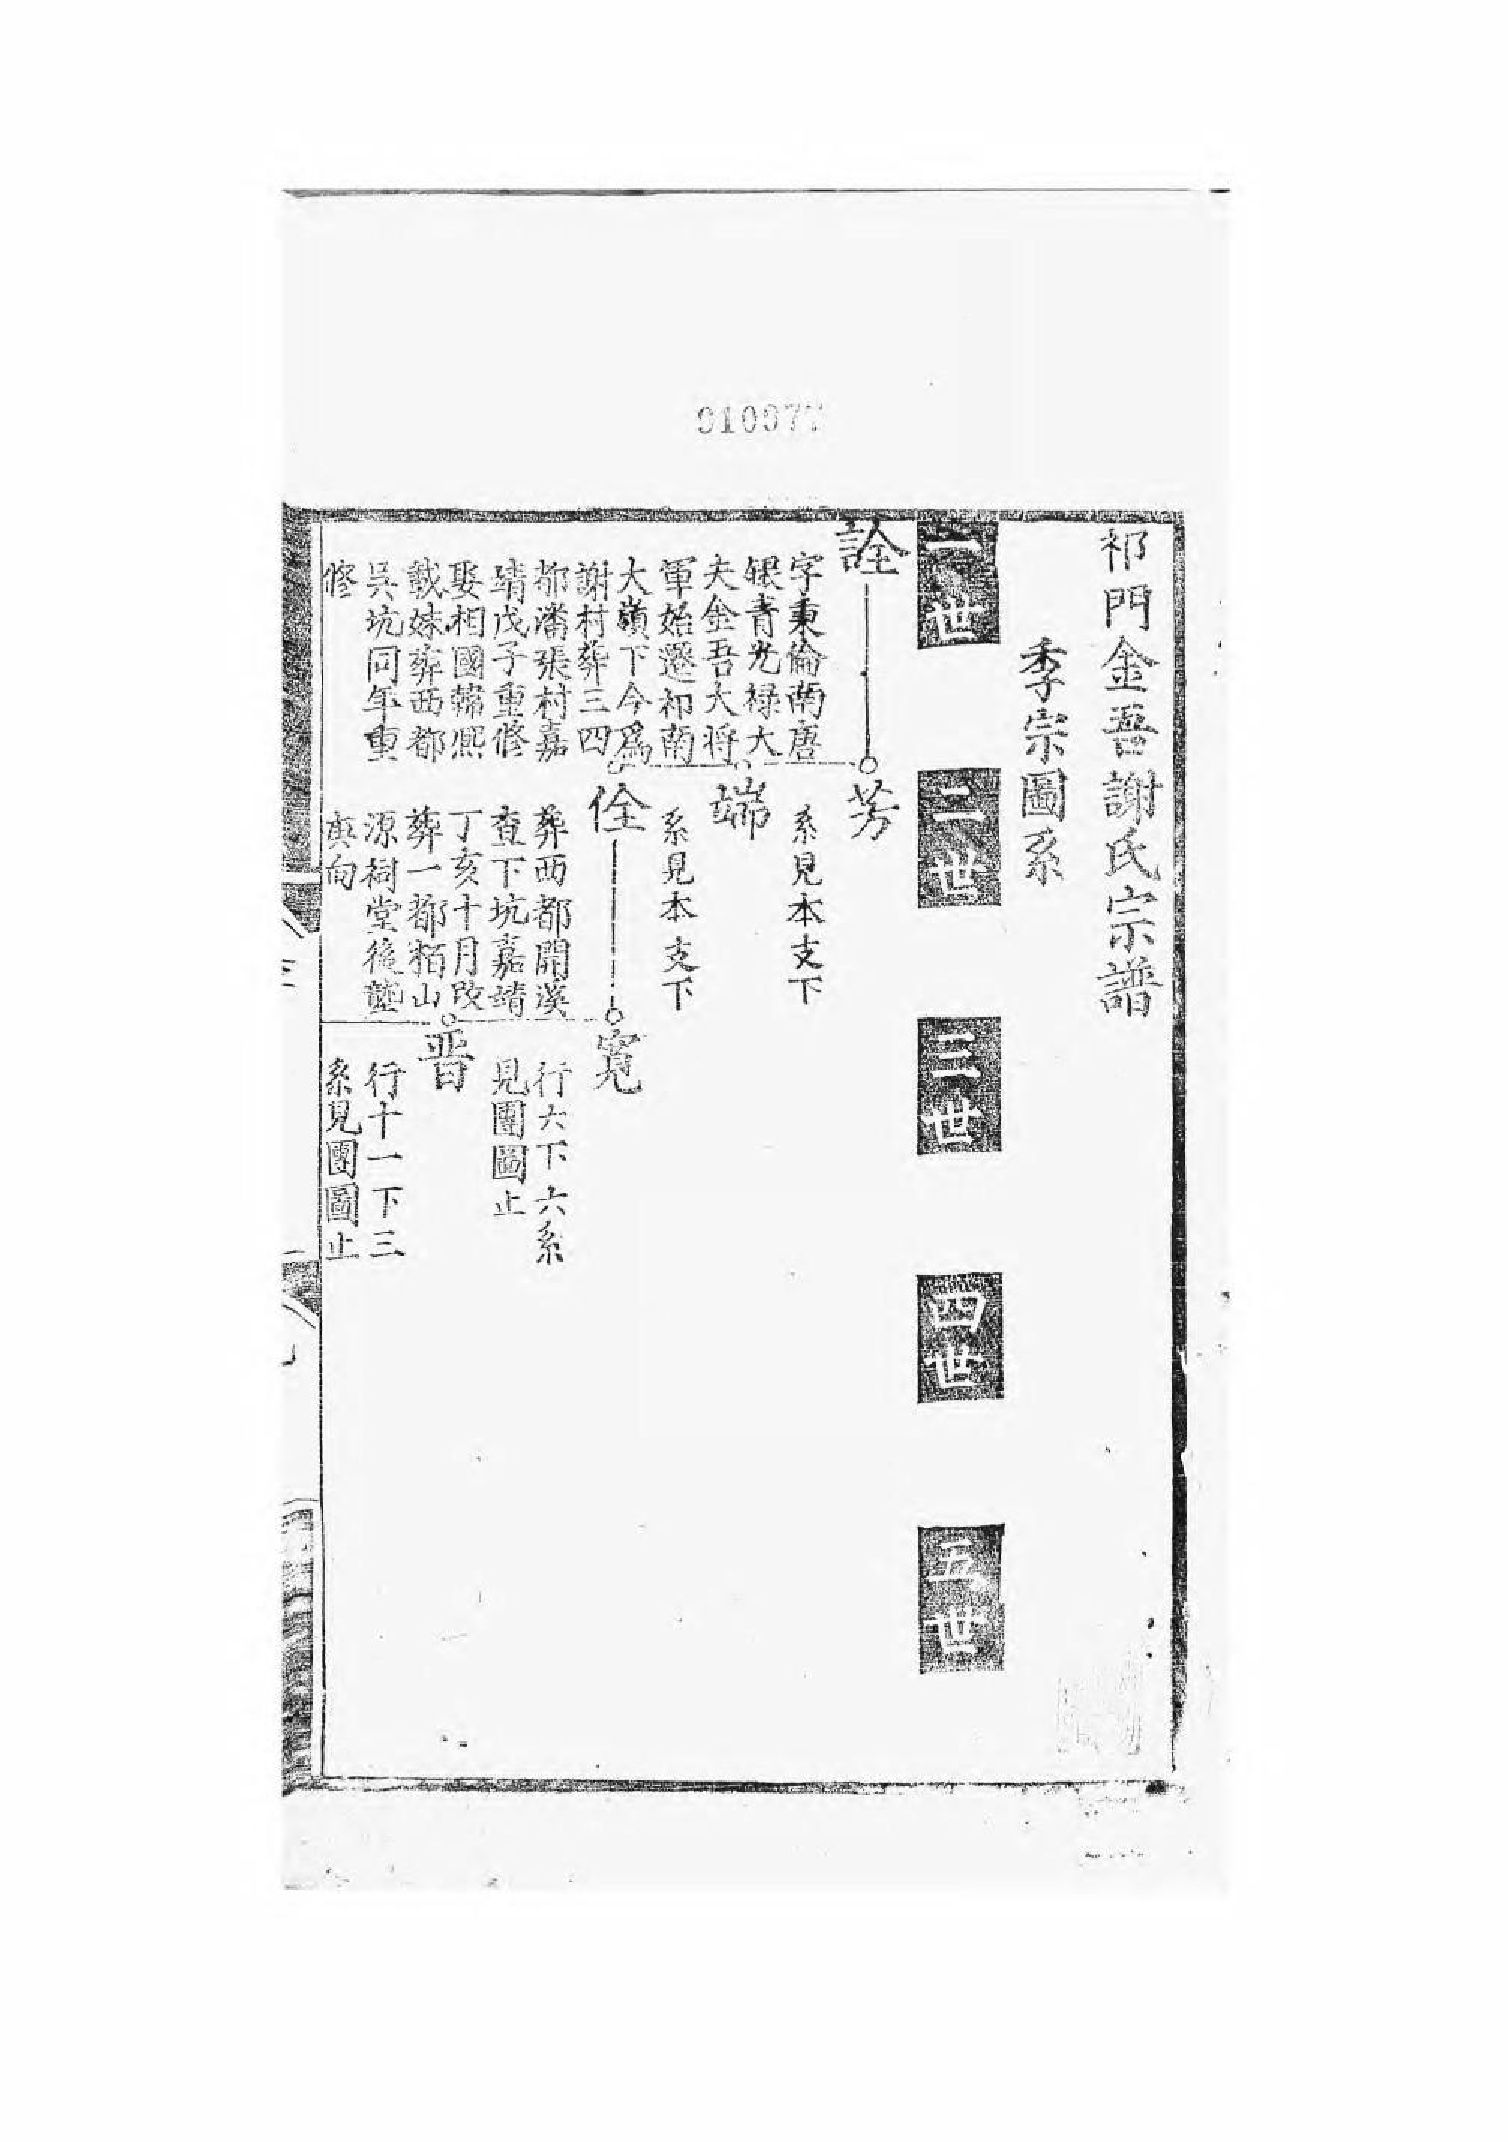 祁門金吾謝氏宗譜
季宗圖系
一世
二世
三世
四世
五世
詮
字秉倫南唐
銀青光禄大
夫金吾大将
軍始遷祁南
大嶺下今為
謝村葬三四
都潘張村嘉
靖戊子重修
娶相國韓熙
載妹葬西都
吳坑同年重
修
芳
系見本支下
端
系見本支下
佺
葬西都開溪
查下坑嘉靖
丁亥十月改
葬一都栢山
源祠堂後塟
寅向
寬
行六下六系
見團圖止
晋
行十一下三
系見團圖止